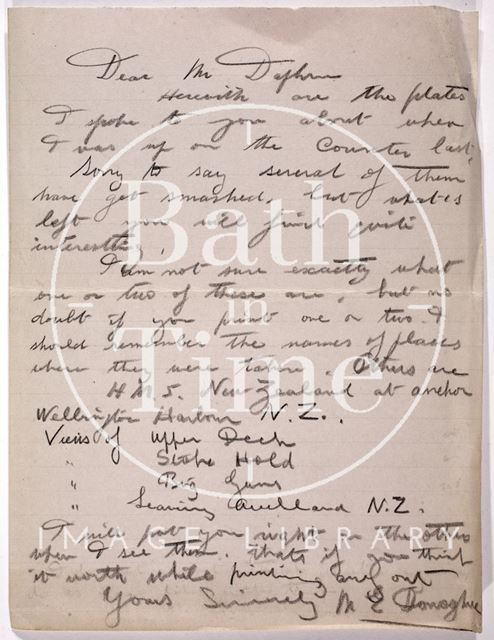 Dear Mr Daphne
Herewith are the plates
I spoke to you about when
I was up on the Counter last,
Sorry to say several of them
have got smashed, but what is
left you will find quite
interesting.
I am not sure exactly what
one or two of these are, but no
doubt if you print one or two I
should remember the names of places
where they were taken. Others are
H.M.S. New Zealand at anchor
Wellington Harbour N.Z..
Views of Upper Deck
" Stoke Hold
" Big Guns
" Leaving Auckland N.Z.
I will put you right on the others
when I see them. thats if you think
it worth while printing any out
Yours Sincerely M E Donoghue
Bath
in
Time
IMAGE LIBRARY